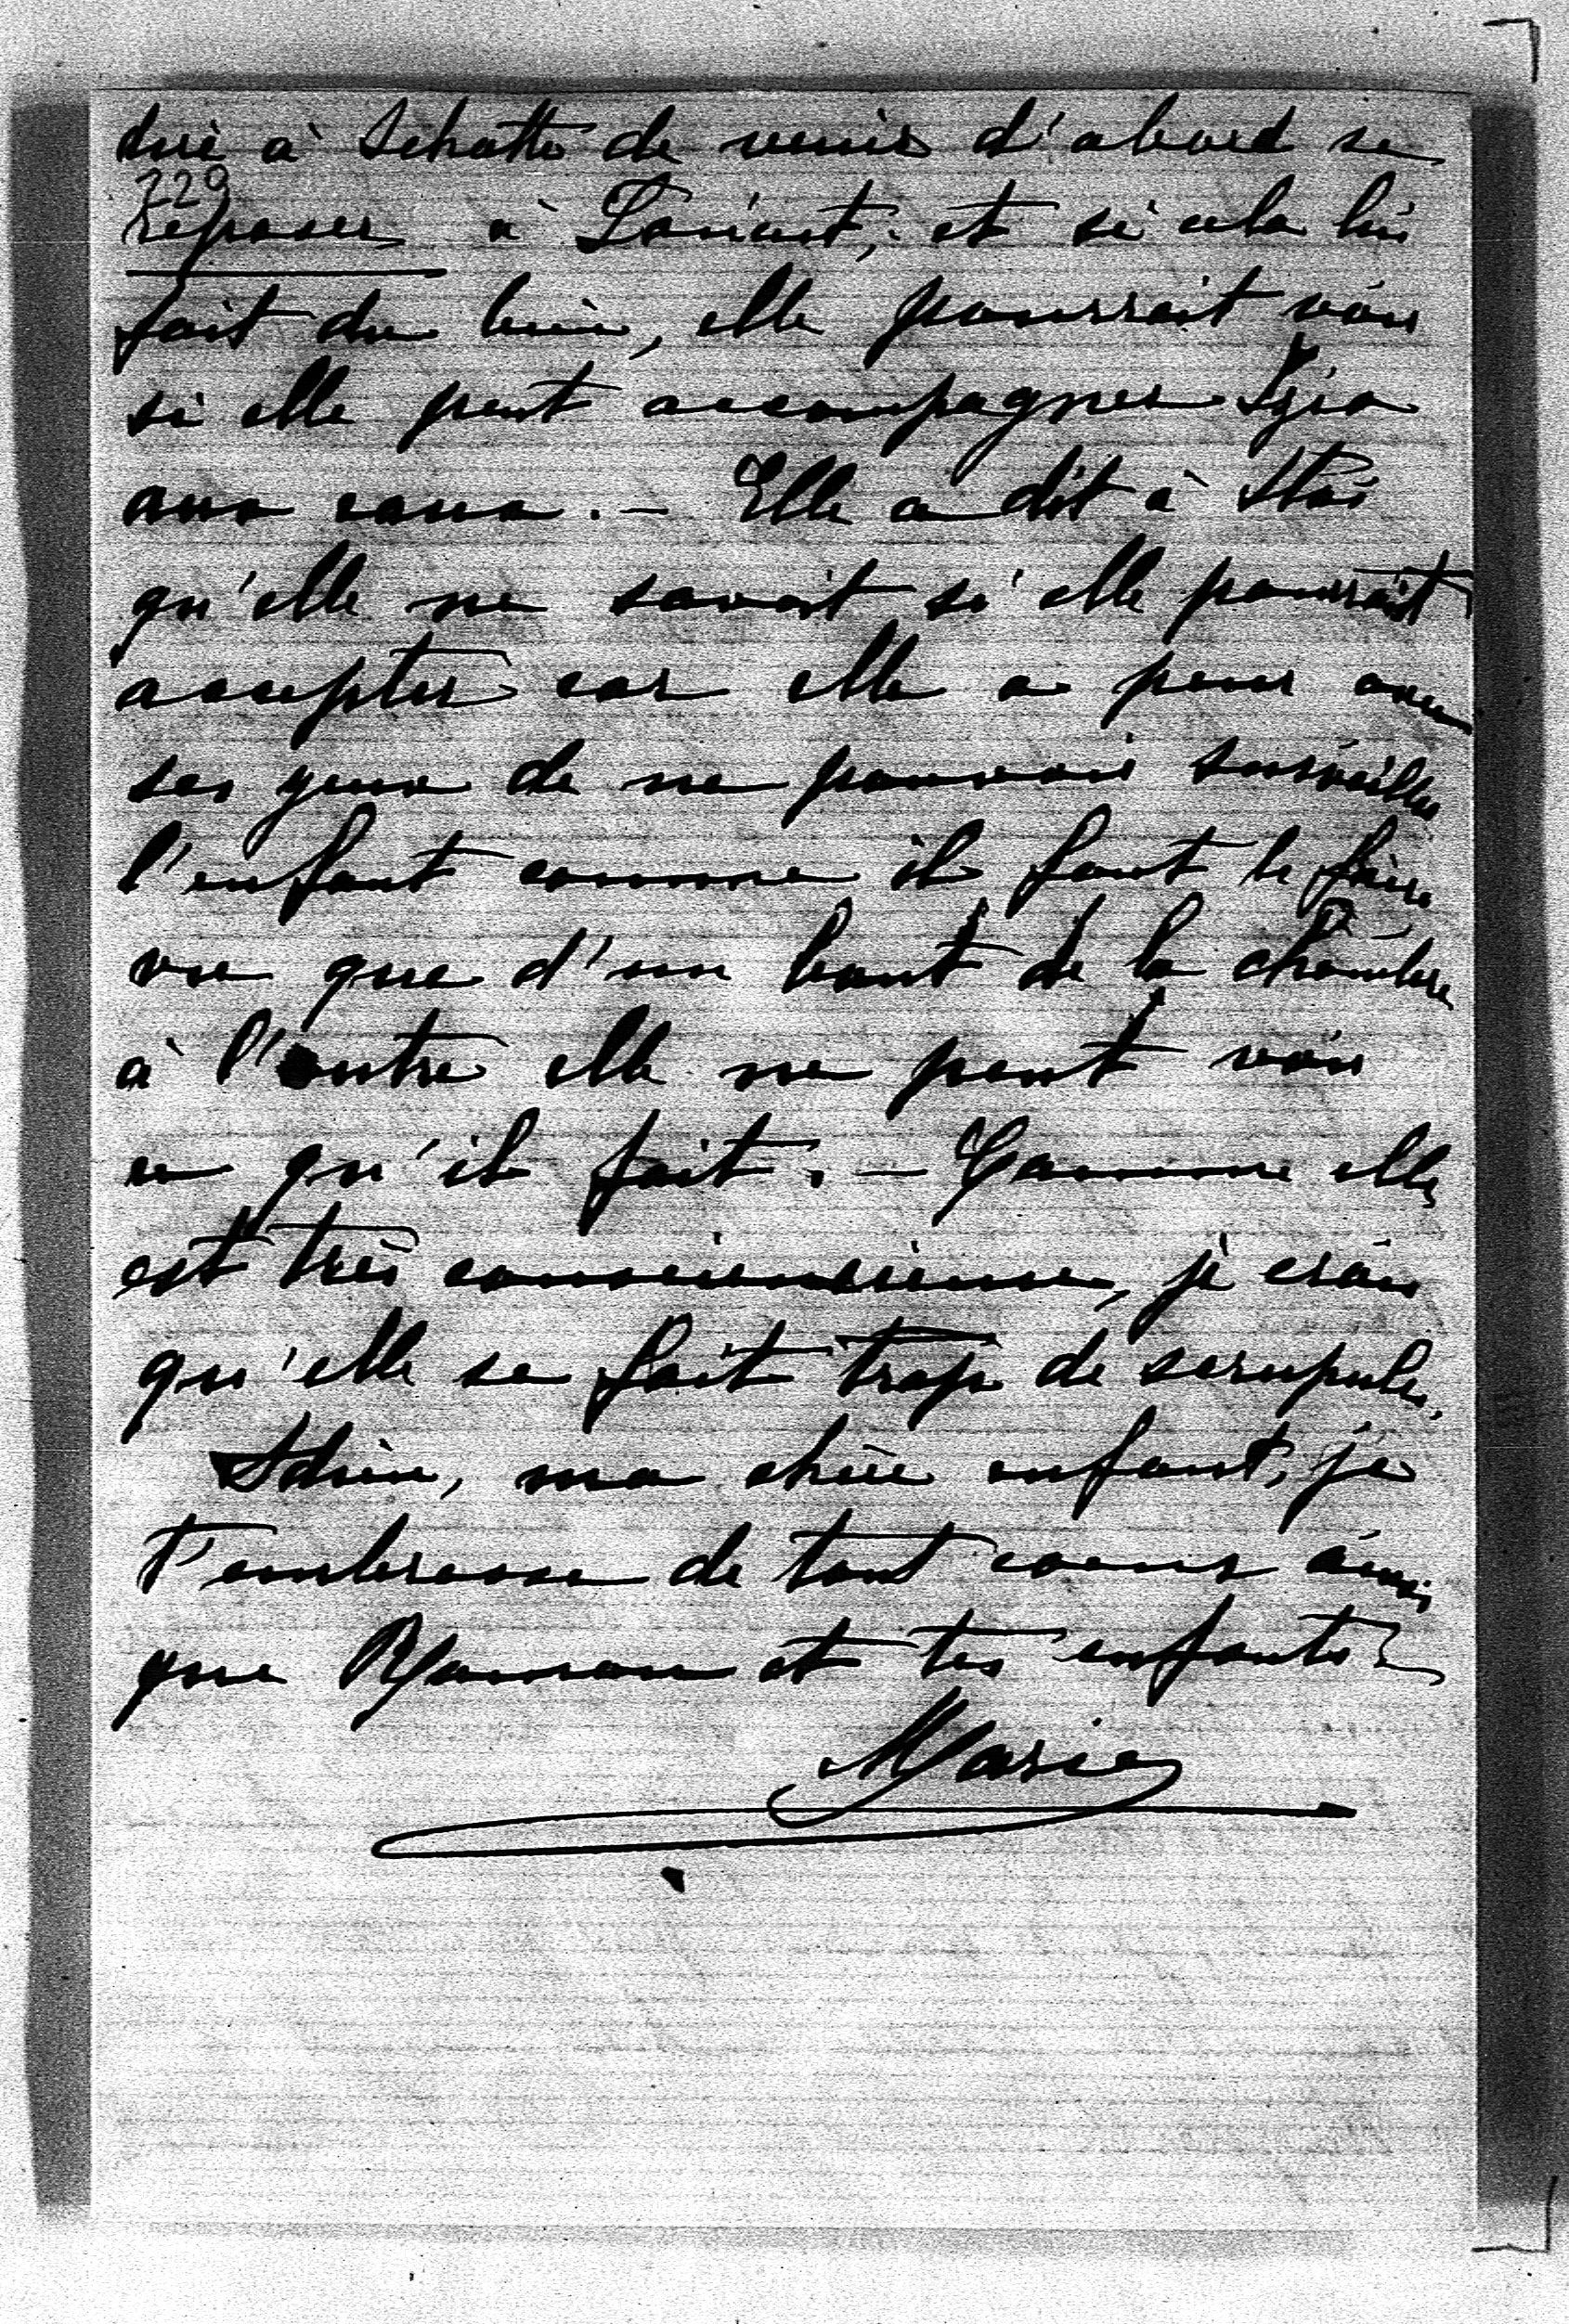 duré à Schatto de venir d'abord se
229
reposer à Loriant, et si cela lui
fait du bien, elle pourrait voir
si elle peut accompagner
aux eaux. — Elle a dit à
qu'elle ne savait si elle pourrait
accepter car elle a peur avec
ses yeux de ne pouvoir surveiller
l'enfant comme il faut le faire
vu que d'un bout de la chambre
à l'autre elle ne peut voir
ce qu'il fait. — Comme elle
est très consciencieuse, je crois
qu'elle se fait trop de scrupules.
Adieu, ma chère enfant, je
t'embrasse de tout coeur ainsi
que Maman et tes enfants
Marie